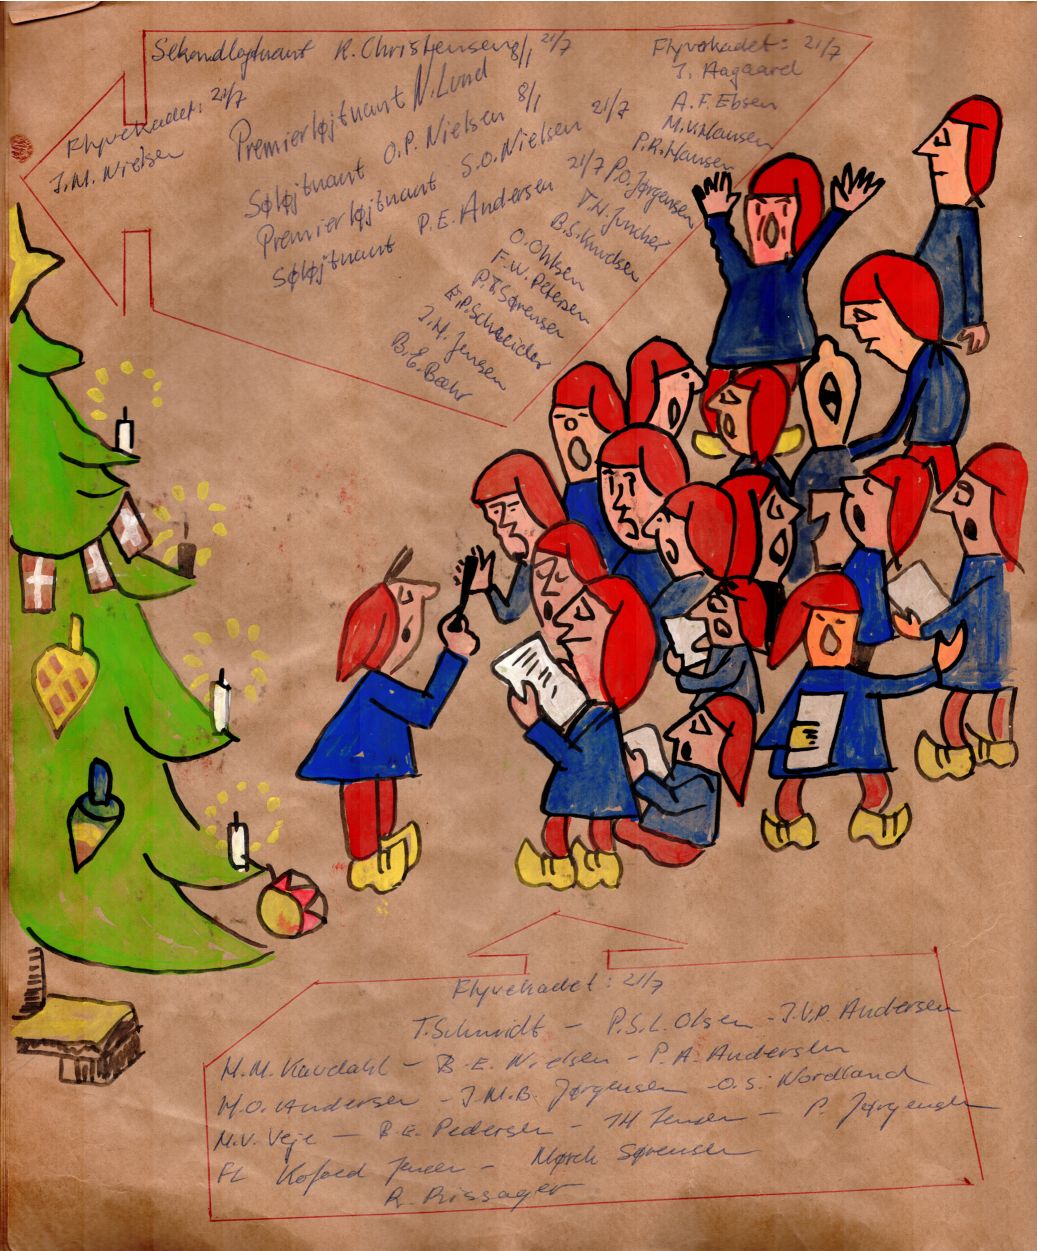 Sekondløjtnant R. Christensen 8/1 21/7
Premierløjtnant N. Lund
Søløjtnant O.P. Nielsen 8/1
Premierløjtnant S.O. Nielsen 21/7
Søløjtnant P.E. Andersen 21/7
Flyvekadet: 21/7
J.M. Nielsen
Flyvekadet: 21/7
J. Aagaard
A.F. Ebsen
M.V. Hansen
P.R. Hansen
P.O. Jørgensen
T.N. Juncher
B.S. Knudsen
O. Ohlsen
F.W. Petersen
P.T. Sørensen
E.P. Schneider
J.H. Jensen
B.E. Bæhr
Flyvekadet: 21/7
T. Schmidt – P.S.L. Olsen – J.V.P. Andersen
M.M. Kavdahl – B.E. Nielsen – P.A. Andersen
H.O. Andersen – J.M.B. Jørgensen – O.S. Nordland
M.V. Veje – B.E. Pedersen – JH Jensen – P. Jørgensen
FL Kofoed Jensen – Mørch Sørensen
R. Rissager